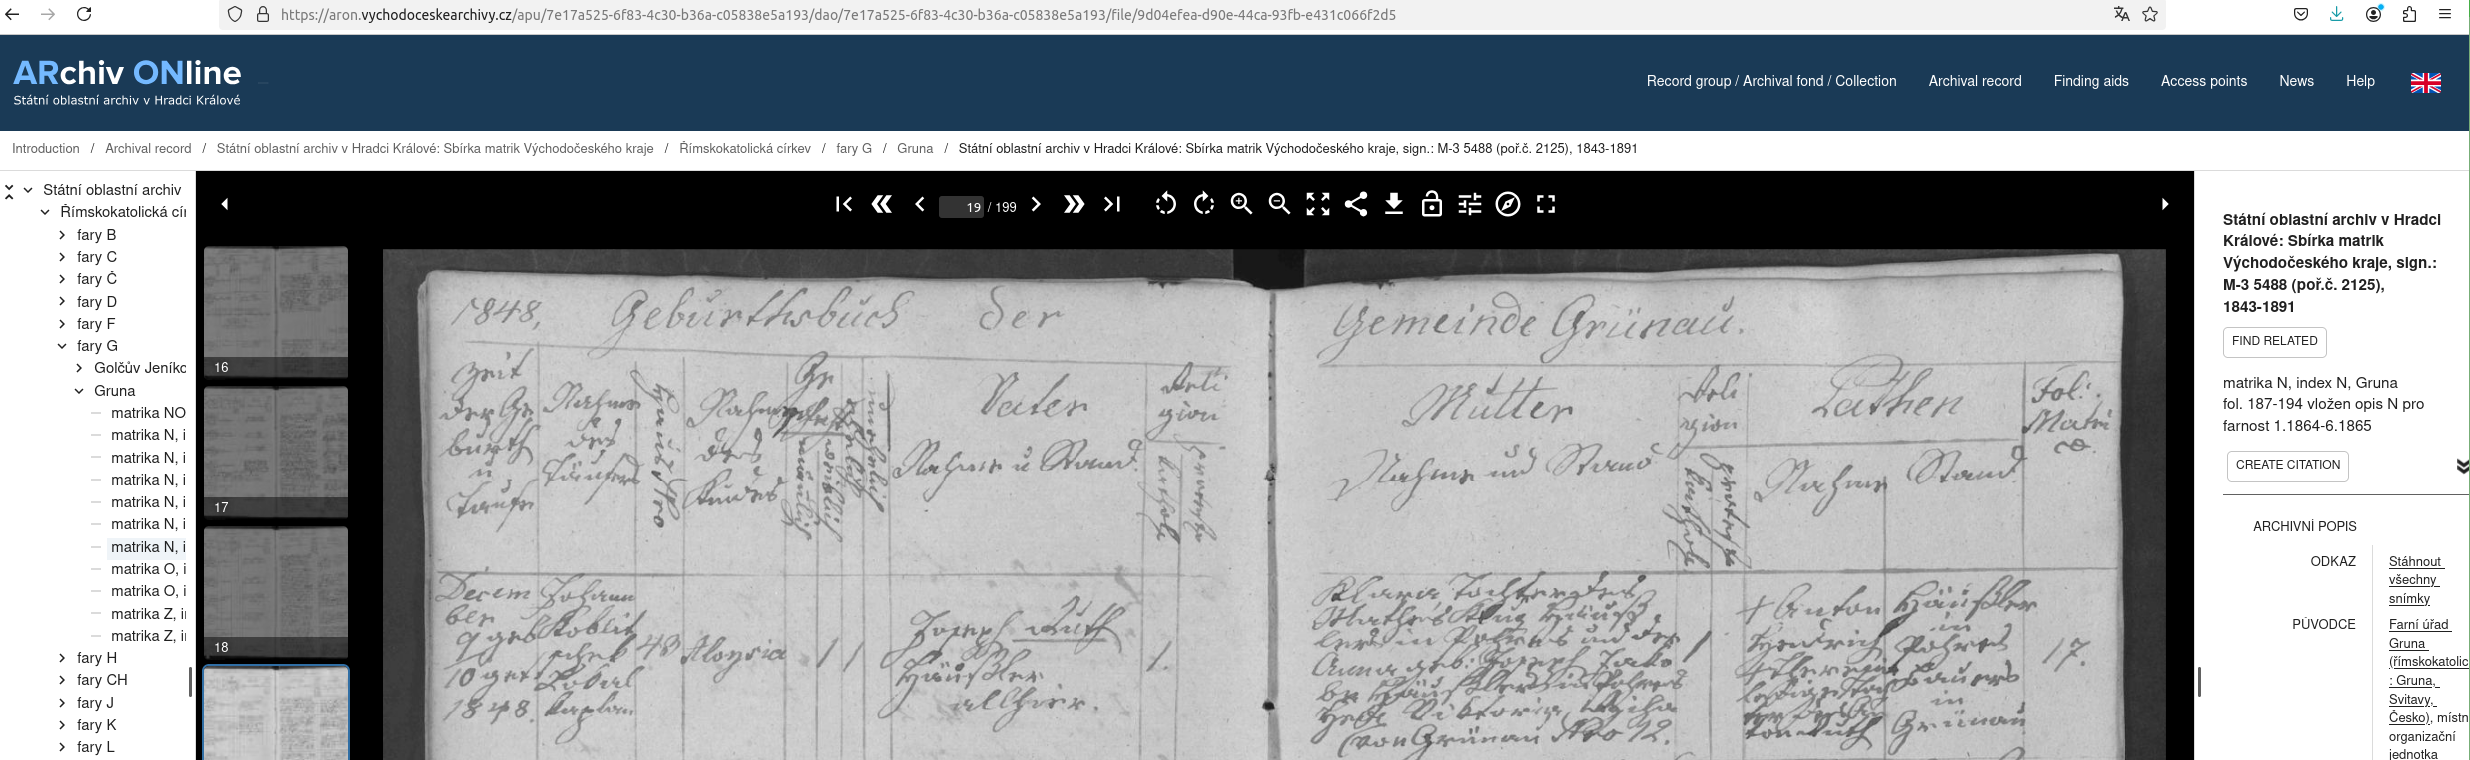 https://aron.vychodoceskearchivy.cz/apu/7e17a525-6f83-4c30-b36a-c05838e5a193/dao/7e17a525-6f83-4c30-b36a-c05838e5a193/file/9d04efea-d90e-44ca-93fb-e431c066f2d5
ARchiv ONline
Státní oblastní archiv v Hradci Králové
Record group / Archival fond / Collection
Archival record
Finding aids
Access points
News
Help
Introduction / Archival record / Státní oblastní archiv v Hradci Králové: Sbírka matrik Východočeského kraje / Římskokatolická církev / fary G / Gruna / Státní oblastní archiv v Hradci Králové: Sbírka matrik Východočeského kraje, sign.: M-3 5488 (poř.č. 2125), 1843-1891
Státní oblastní archiv
Římskokatolická cír
fary B
fary C
fary Č
fary D
fary F
fary G
Golčův Jeníko
Gruna
matrika NO
matrika N, i
matrika N, i
matrika N, i
matrika N, i
matrika N, i
matrika N, i
matrika O, i
matrika O, i
matrika Z, i
matrika Z, i
fary H
fary CH
fary J
fary K
fary L
19 / 199
16
17
18
1848. Geburthsbuch der Gemeinde Grünau.
Zeit
der Ge
burth
u
Taufe
Nahme
des
Täufers
Haus Nro
Nahme
des
Kindes
Ge
männlich
weiblich
ehelich
unehelich
Vater
Nahme u Stand.
Reli
gion
kathol
Mutter
Nahme und Stand
Reli
gion
kathol
Pathen
Nahme Stand
Fol:
Matri
Decem
ber
9 geb
10 get
1848.
Johann
Kaplan
43
Aloysia
1 1
Joseph Muth
Häußler
allhier.
1.
Klara Tochter des
Häuss
ler in und der
Anna geb: Joseph
Häußlers in
Heb:
von Grünau Nro 12.
1
+ Anton
Häußler
in
Bauers
in
Grünau
17.
Státní oblastní archiv v Hradci
Králové: Sbírka matrik
Východočeského kraje, sign.:
M-3 5488 (poř.č. 2125),
1843-1891
FIND RELATED
matrika N, index N, Gruna
fol. 187-194 vložen opis N pro
farnost 1.1864-6.1865
CREATE CITATION
ARCHIVNÍ POPIS
ODKAZ
Stáhnout
všechny
snímky
PŮVODCE
Farní úřad
Gruna
(římskokatolic
: Gruna,
Svitavy,
Česko), místn
organizační
jednotka